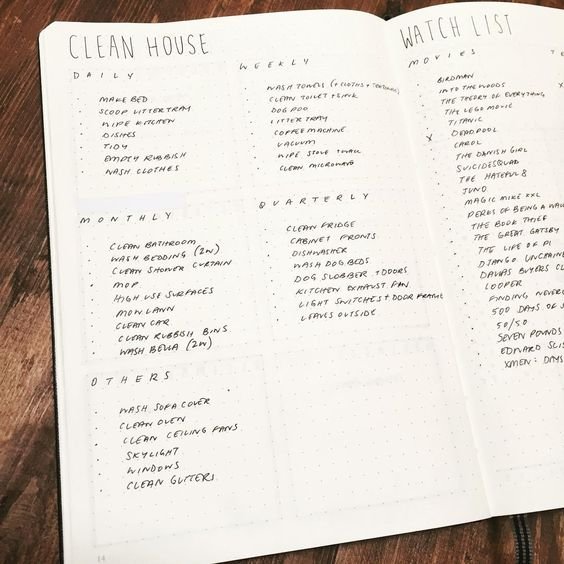 CLEAN HOUSE
DAILY
MAKE BED
SCOOP LITTER TRAY
WIPE KITCHEN
DISHES
TIDY
EMPTY RUBBISH
WASH CLOTHES
WEEKLY
WASH TOWELS (+ CLOTHS +
CLEAN TOILET + SINK
DOG POO
LITTER TRAY
COFFEE MACHINE
VACUUM
WIPE STOVE + WALL
CLEAN MICROWAVE
MONTHLY
CLEAN BATHROOM
WASH BEDDING (2W)
CLEAN SHOWER CURTAIN
MOP
HIGH USE SURFACES
MOW LAWN
CLEAN CAR
CLEAN RUBBISH BINS
WASH BELLA (2W)
QUARTERLY
CLEAN FRIDGE
CABINET FRONTS
DISHWASHER
WASH DOG BEDS
DOG SLOBBER + DOORS
KITCHEN EXHAUST FAN
LIGHT SWITCHES + DOOR FRAME
LEAVES OUTSIDE
OTHERS
WASH SOFA COVER
CLEAN OVEN
CLEAN CEILING FANS
SKYLIGHT
WINDOWS
CLEAN GUTTERS
14
WATCH LIST
MOVIES
BIRDMAN
INTO THE WOODS
THE THEORY OF EVERYTHING
THE LEGO MOVIE
TITANIC
x DEADPOOL
CAROL
THE DANISH GIRL
SUICIDE SQUAD
THE HATEFUL 8
JUNO
MAGIC MIKE XXL
PERKS OF BEING A WALL
THE BOOK THIEF
THE GREAT GATSBY
THE LIFE OF PI
DJANGO UNCHAINE
DALLAS BUYERS CL
LOOPER
FINDING NEVER
500 DAYS OF S
50/50
SEVEN POUNDS
EDWARD SCIS
XMEN: DAYS